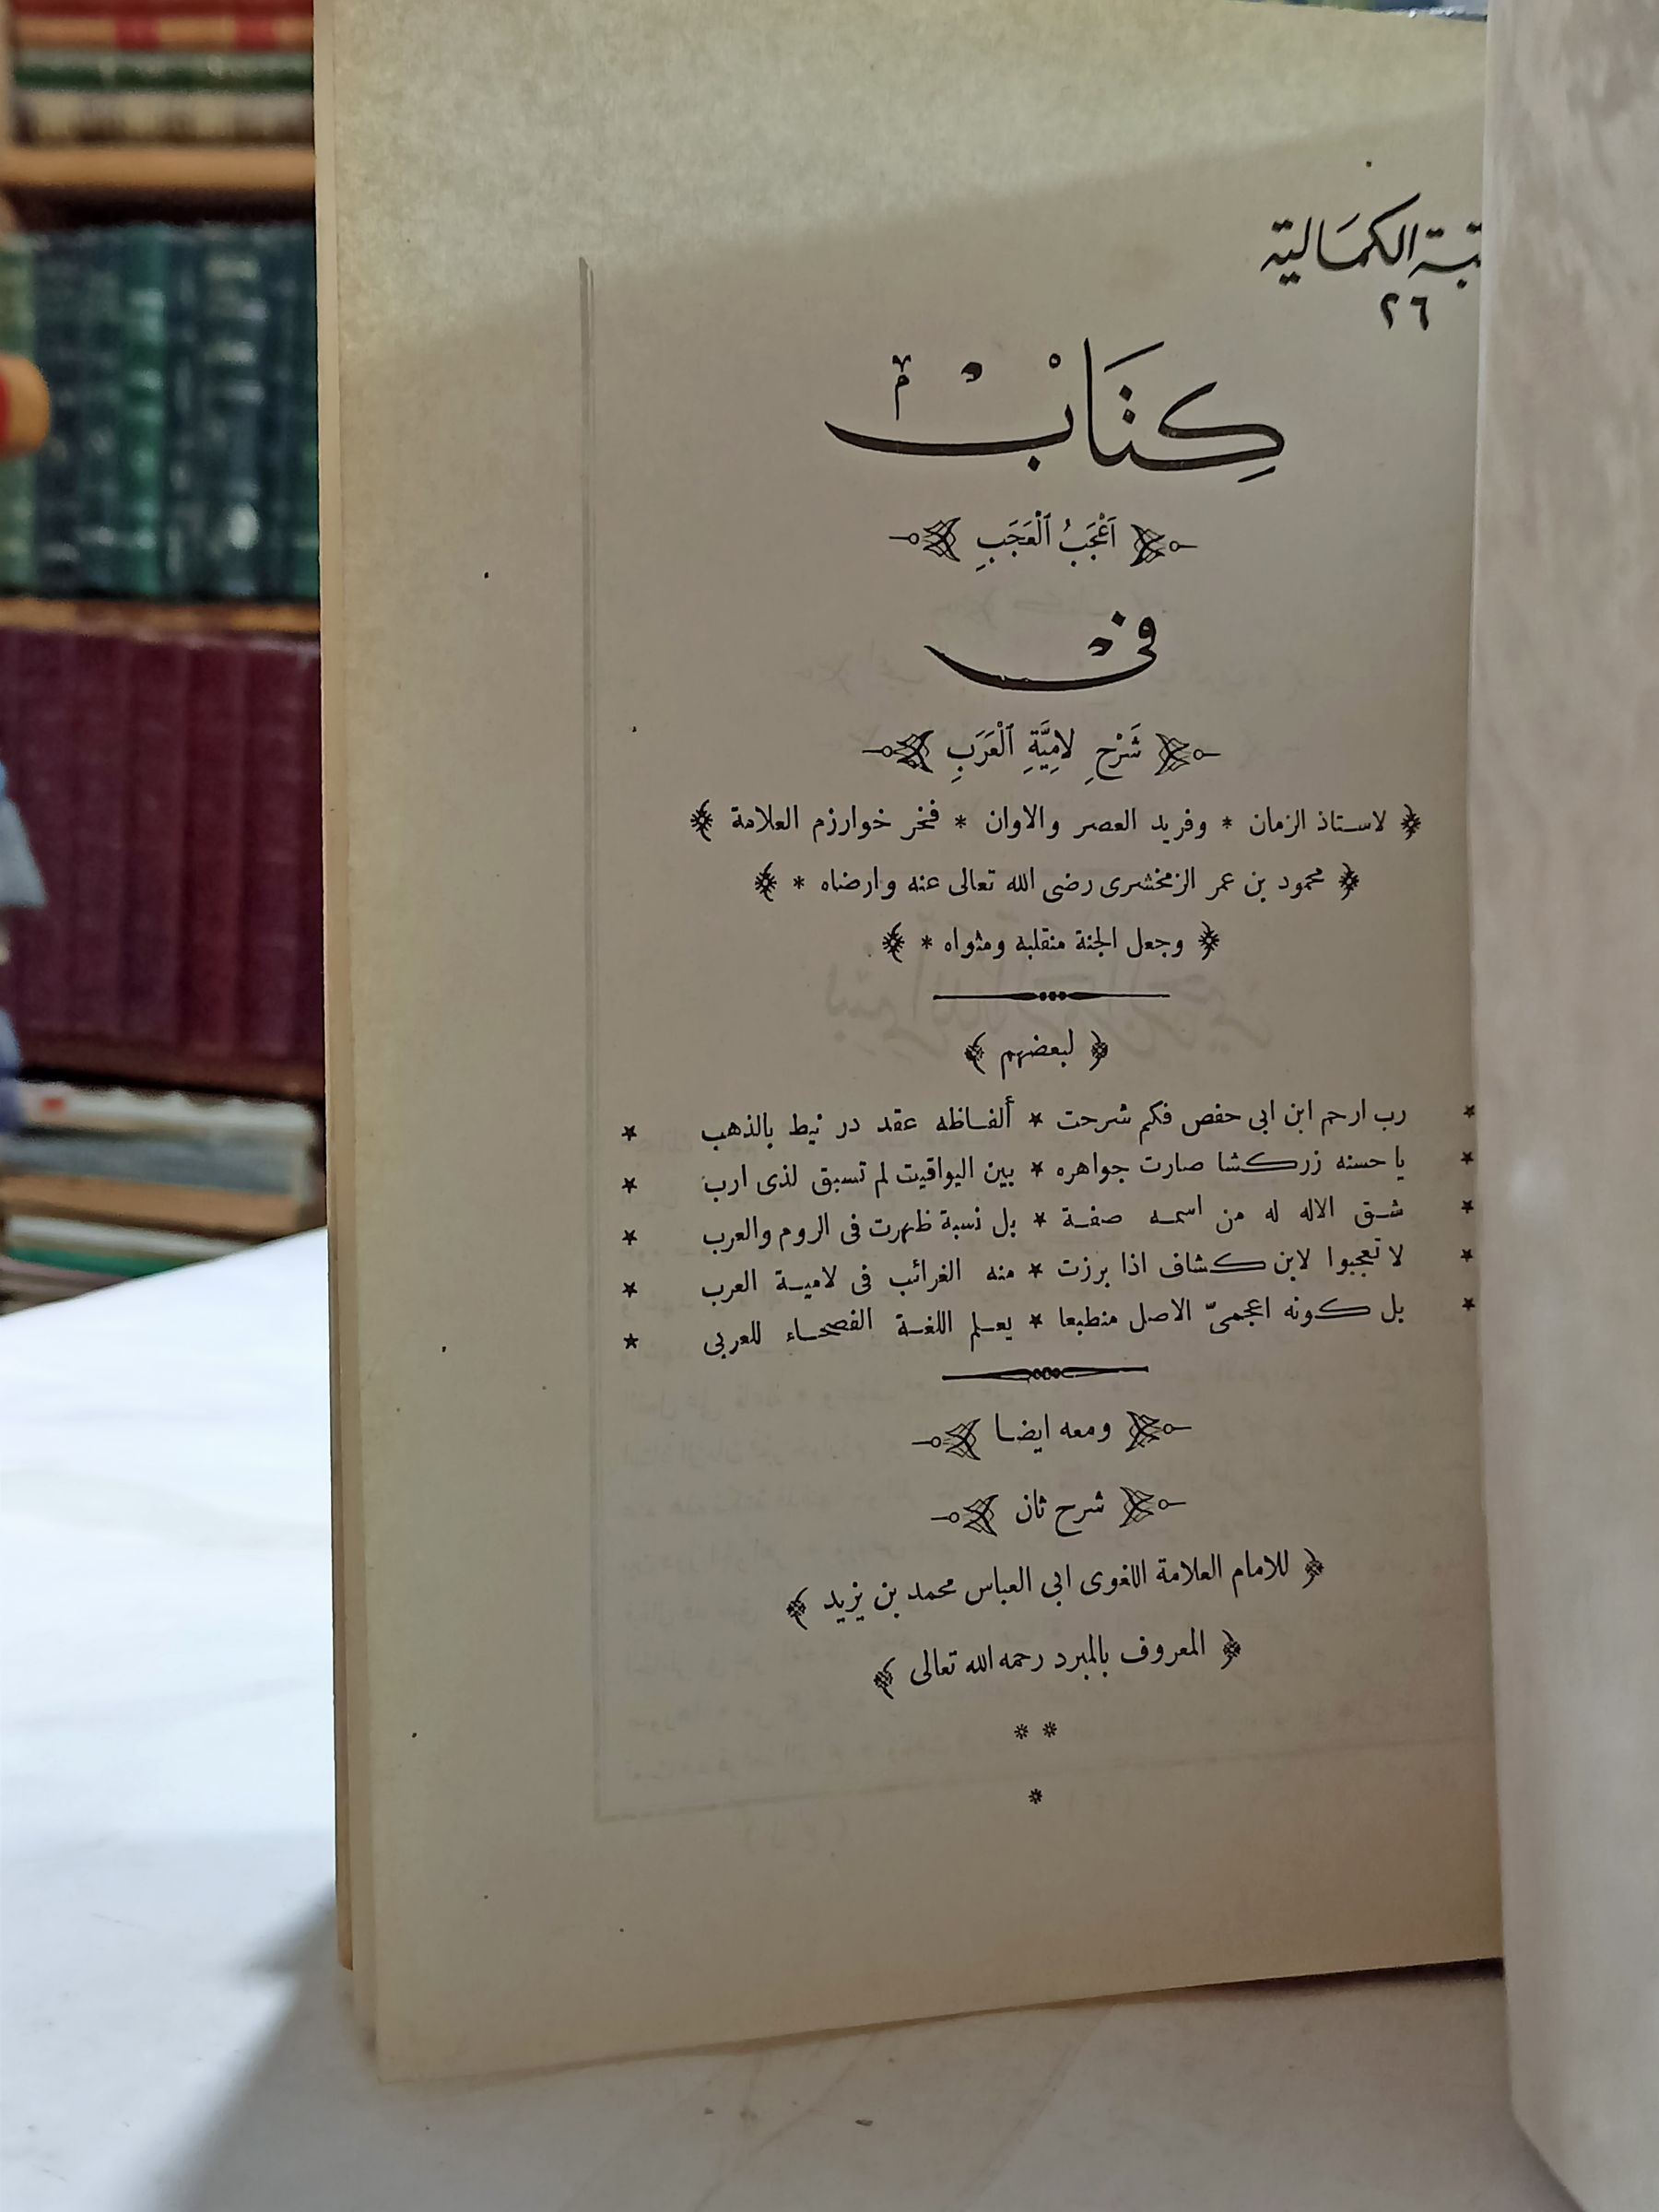 الكمالية
٢٦
كِتَابْ
اَعْجَبُ الْعَجَبِ
فى
شَرْحِ لَامِيَّةِ الْعَرَبِ
﴿ لاستاذ الزمان * وفريد العصر والاوان * فخر خوارزم العلامة ﴾
﴿ محمود بن عمر الزمخشرى رضى الله تعالى عنه وارضاه * ﴾
﴿ وجعل الجنة منقلبه ومثواه * ﴾
﴿ لبعضهم ﴾
* رب ارحم ابن ابى حفص فكم شرحت * ألفاظه عقد در نيط بالذهب *
* ياحسنه زركشا صارت جواهره * بين اليواقيت لم تسبق لذى ارب *
* شق الاله له من اسمه صفة * بل نسبة ظهرت فى الروم والعرب *
* لا تعجبوا لابن كشاف اذا برزت * منه الغرائب فى لامية العرب *
* بل كونه اعجمىّ الاصل منطبعا * يعلم اللغة الفصحاء للعربى *
ومعه ايضا
شرح ثان
﴿ للامام العلامة اللغوى ابى العباس محمد بن يزيد ﴾
﴿ المعروف بالمبرد رحمه الله تعالى ﴾
* *
*